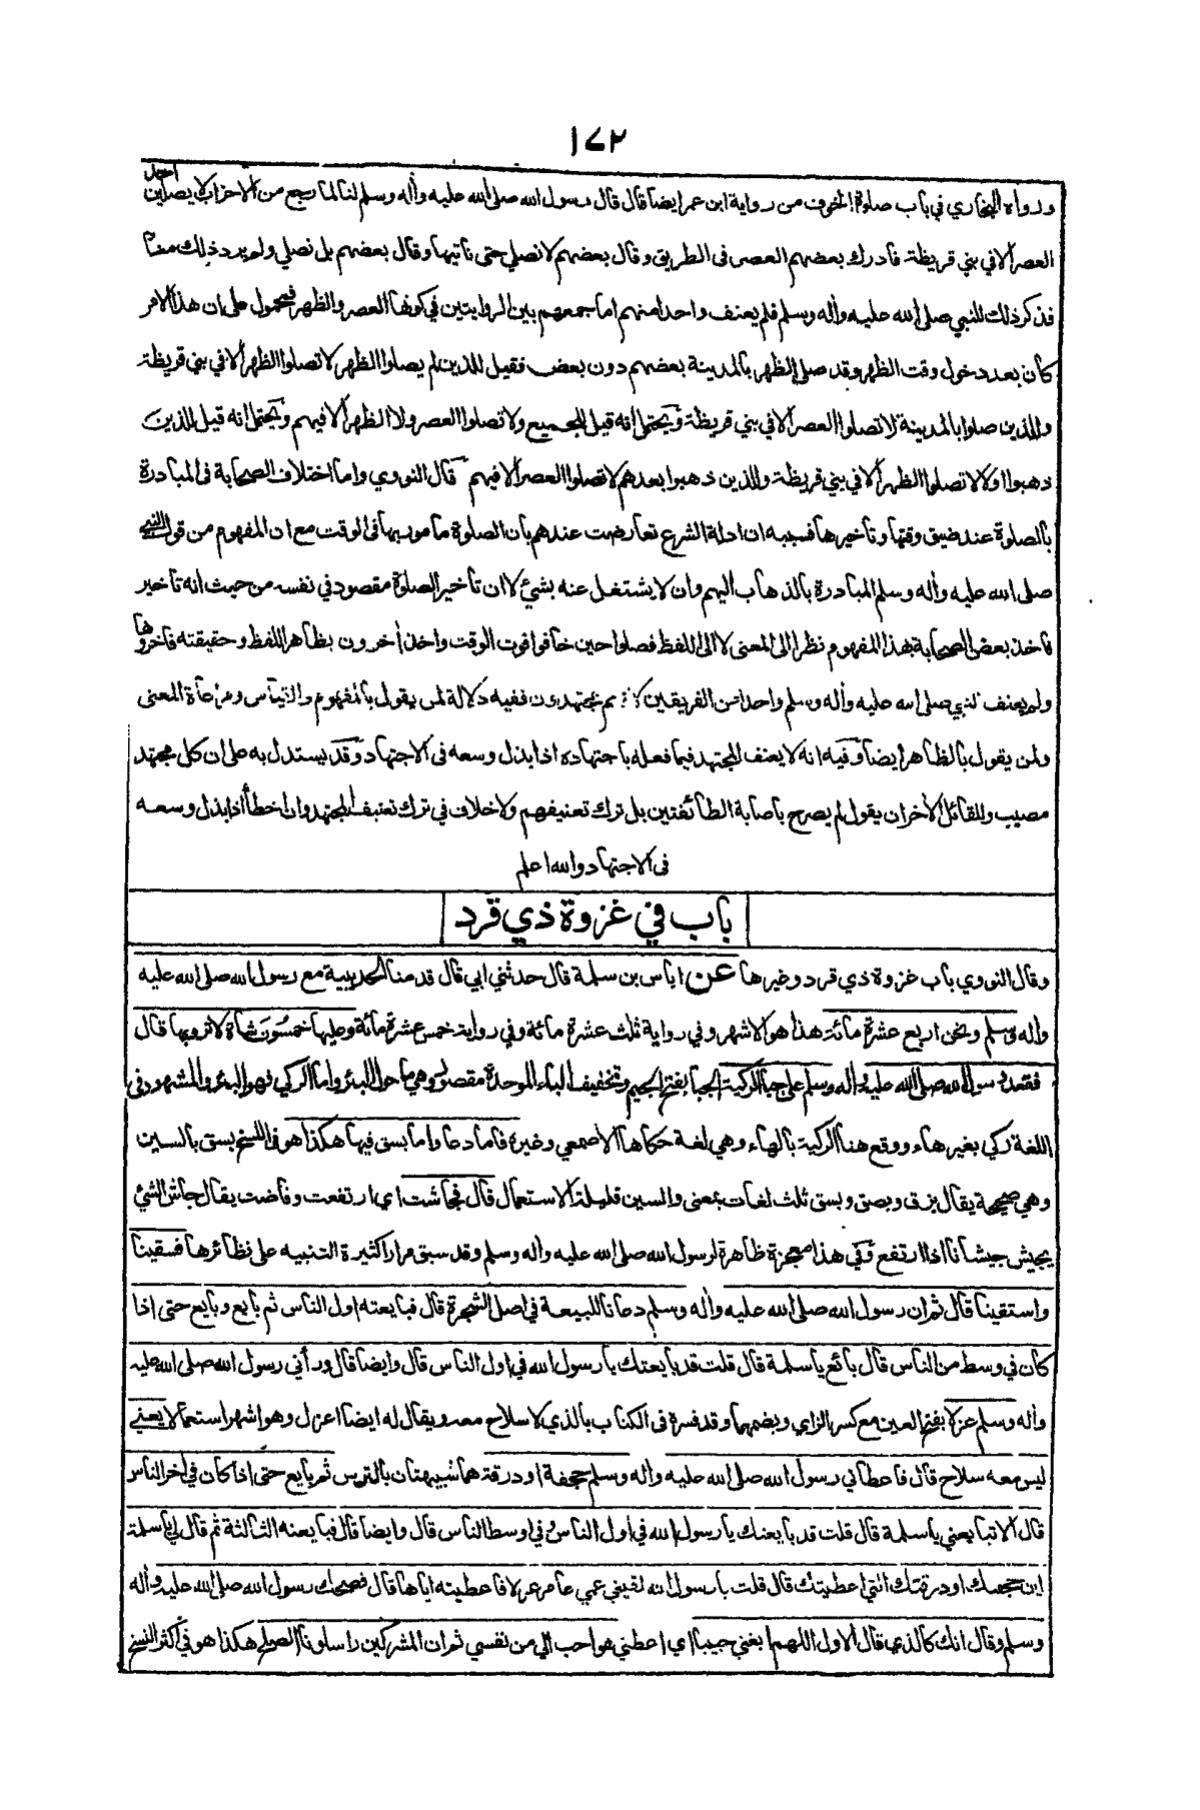 ١٧٢
احد
ورواه البخاري في باب صلوة الخوف من رواية ابن عمر ايضا قال قال رسول الله صلى الله عليه وأله وسلم لنا لما رجع من الاحزاب لا يصلين
العصر الا في بني قريظة فادرك بعضهم العصر فى الطريق وقال بعضهم لا نصلي حتى ناتيها وقال بعضهم بل نصلي ولم يرد ذلك منا
فذكر ذلك للنبي صلى الله عليه وأله وسلم فلم يعنف واحدا منهم اما جمعهم بين الروايتين في كونها العصر والظهر فمحمول على ان هذا الامر
كان بعد دخول وقت الظهر وقد صلى الظهر بالمدينة بعضهم دون بعض فقيل للذين لم يصلوا الظهر لا تصلوا الظهر الا في بني قريظة
وللذين صلوا بالمدينة لا تصلوا العصر الا في بني قريظة ويحتمل انه قيل للجميع ولا تصلوا العصر ولا الظهر الا فيهم ويحتمل انه قيل للذين
ذهبوا اولا لا تصلوا الظهر الا في بني قريظة وللذين ذهبوا بعدهم لا تصلوا العصر الا فيهم قال النووي واما اختلاف الصحابة فى المبادرة
بالصلوة عند ضيق وقتها وتأخيرها فسببه ان ادلة الشرع تعارضت عندهم بأن الصلوة مأمور بها فى الوقت مع ان المفهوم من قول النبي
صلى الله عليه وأله وسلم المبادرة بالذهاب اليهم وان لا يشتغل عنه بشئ لا ان تأخير الصلوة مقصود في نفسه من حيث انه تأخير
فأخذ بعض الصحابة بهذا المفهوم نظرا الى المعنى لا الى اللفظ فصلوا حين خافوا فوت الوقت واخذ أخرون بظاهر اللفظ وحقيقته فأخروها
ولم يعنف النبي صلى الله عليه وأله وسلم واحدا من الفريقين لانهم مجتهدون ففيه دلالة لمن يقول بالمفهوم والقياس ومراعاة المعنى
ولمن يقول بالظاهر ايضا وفيه انه لا يعنف المجتهد فيما فعله باجتهاده اذا بذل وسعه فى الاجتهاد وقد يستدل به على ان كل مجتهد
مصيب وللقائل الأخر ان يقول لم يصرح بأصابة الطائفتين بل ترك تعنيفهم ولا خلاف في ترك تعنيف المجتهد وان اخطأ اذا بذل وسعه
فى الاجتهاد والله اعلم
باب في غزوة ذي قرد
وقال النووي باب غزوة ذي قرد وغيرها عن اياس بن سلمة قال حدثني ابي قال قدمنا الحديبية مع رسول الله صلى الله عليه
وأله وسلم ونحن اربع عشرة مائة هذا هو الاشهر وفي رواية ثلث عشرة مائة وفي رواية خمس عشرة مائة وعليها خمسون شاة لا ترويها قال
فقعد رسول الله صلى الله عليه وأله وسلم على جبا الركية الجبا بفتح الجيم وتخفيف الباء الموحدة مقصور وهي ما حول البئر واما الركي فهو البئر والمشهور في
اللغة ركي بغير هاء ووقع هنا الركية بالهاء وهي لغة حكاها الاصمعي وغيره فاما دعا واما بسق فيها هكذا هو فى النسخ بسق بالسين
وهي صحيحة يقال بزق وبصق وبسق ثلث لغات بمعنى والسين قليلة الاستعمال قال فجاشت اي ارتفعت وفاضت يقال جاش الشئ
يجيش جيشانا اذا ارتفع وفي هذا معجزة ظاهرة لرسول الله صلى الله عليه وأله وسلم وقد سبق مرارا كثيرة التنبيه على نظائرها فسقينا
واستقينا قال ثم ان رسول الله صلى الله عليه وأله وسلم دعانا للبيعة في اصل الشجرة قال فبايعته اول الناس ثم بايع وبايع حتى اذا
كان في وسط من الناس قال بائع يا سلمة قال قلت قد بايعتك يا رسول الله في اول الناس قال وايضا قال ورأني رسول الله صلى الله عليه
وأله وسلم عزلا بفتح العين مع كسر الزاي وبضمهما وقد فسره فى الكتاب بالذي لا سلاح معه ويقال له ايضا اعزل وهو اشهر استعمالا يعني
ليس معه سلاح قال فاعطاني رسول الله صلى الله عليه وأله وسلم حجفة او درقة هما شبيهتان بالترس ثم بايع حتى اذا كان في أخر الناس
قال الا تبايعني يا سلمة قال قلت قد بايعتك يا رسول الله في اول الناس وفي اوسط الناس قال وايضا قال فبايعته الثالثة ثم قال لي يا سلمة
اين حجفتك او درقتك التي اعطيتك قال قلت يا رسول الله لقيني عمي عامر عزلا فاعطيته اياها قال فضحك رسول الله صلى الله عليه وأله
وسلم وقال انك كالذي قال الاول اللهم ابغني حبيبا اي اعطني هو احب الي من نفسي ثم ان المشركين راسلونا الصلح هكذا هو في اكثر النسخ